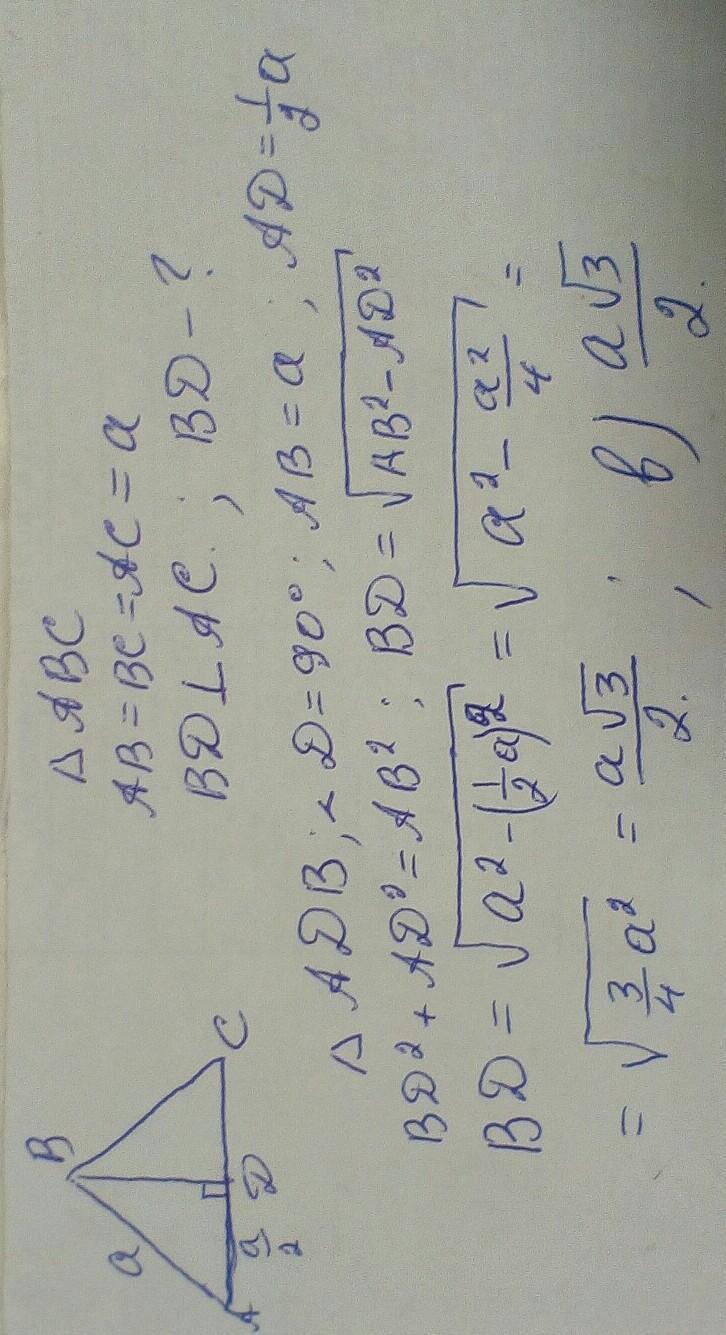 B
a
A
a/2
D
C
△ ABC
AB = BC = AC = a
BD ⊥ AC ; BD - ?
△ ADB, ∠ D = 90° ; AB = a ; AD = 1/2 a
BD² + AD² = AB² ; BD = √(AB² - AD²)
BD = √(a² - (1/2 a)²) = √(a² - a²/4) =
= √(3/4 a²) = a√3/2. ; в) a√3/2.